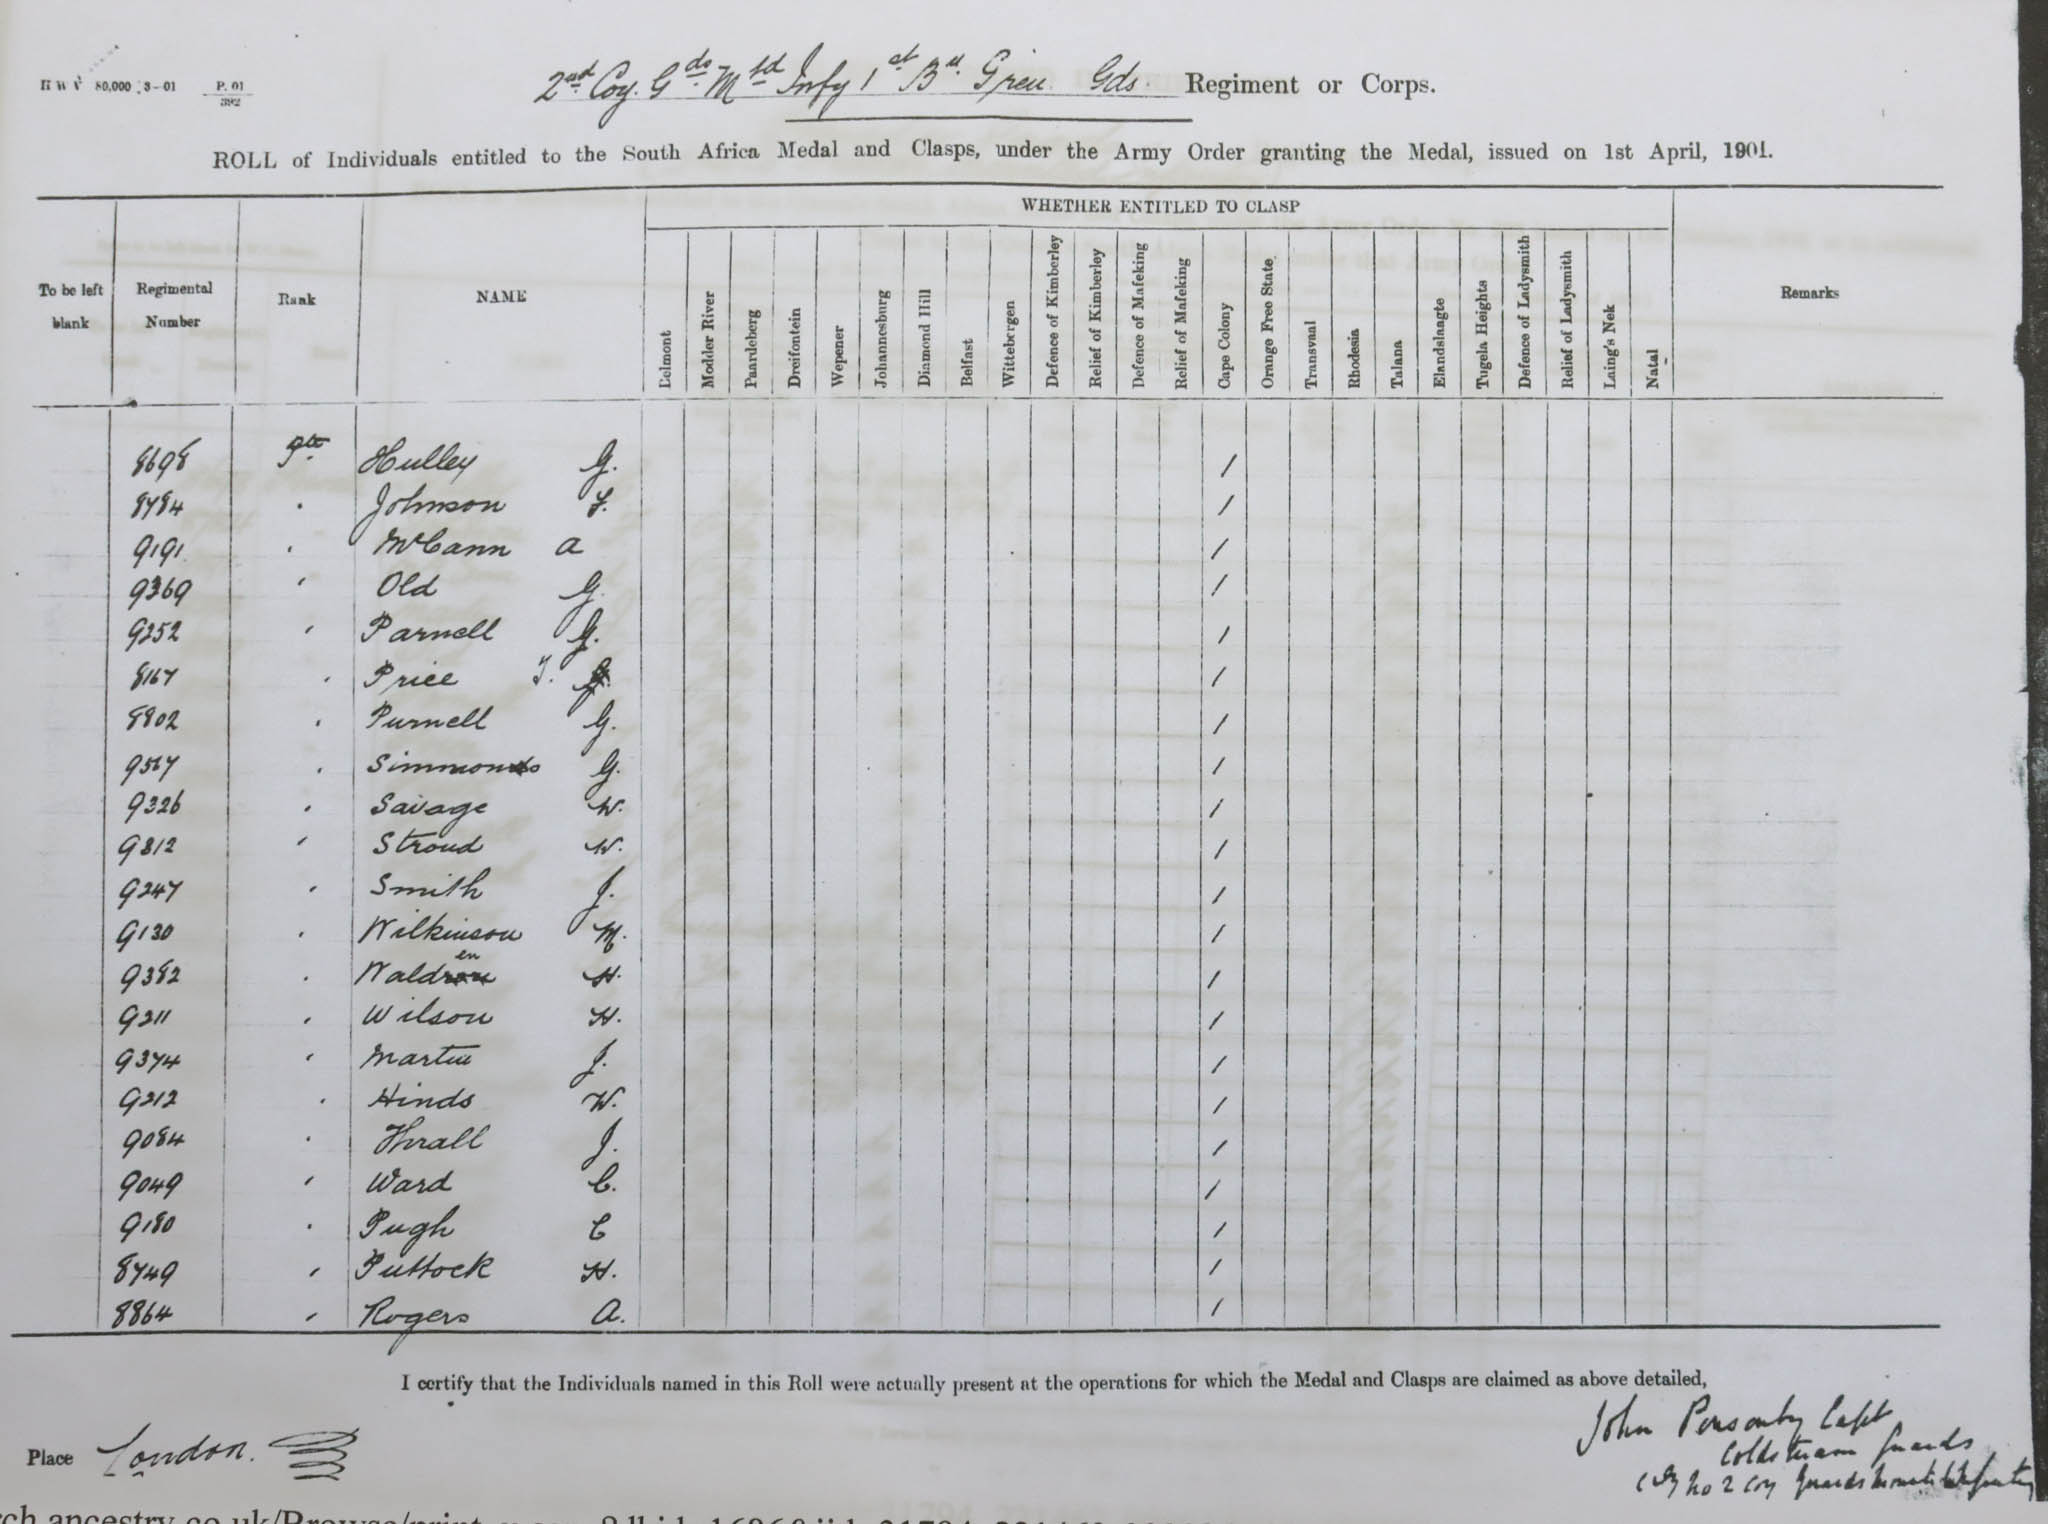 H W V 80,000 3-01 P. 01 / 392
2nd Coy. Gds Mtd Infy 1st Bn Gren Gds. Regiment or Corps.
ROLL of Individuals entitled to the South Africa Medal and Clasps, under the Army Order granting the Medal, issued on 1st April, 1901.
WHETHER ENTITLED TO CLASP
To be left blank Regimental Number Rank NAME Belmont Modder River Paardeberg Dreifontein Wepener Johannesburg Diamond Hill Belfast Wittebergen Defence of Kimberley Relief of Kimberley Defence of Mafeking Relief of Mafeking Cape Colony Orange Free State Transvaal Rhodesia Talana Elandslaagte Tugela Heights Defence of Ladysmith Relief of Ladysmith Laing's Nek Natal Remarks
8698 Pte Hulley G. /
8784 " Johnson F. /
9191 " McCann A /
9369 " Old G. /
9252 " Parnell G. /
8167 " Price T. /
8802 " Purnell G. /
9567 " Simmons G. /
9326 " Savage W. /
9812 " Stroud W. /
9247 " Smith J. /
9130 " Wilkinson M. /
9382 " Waldren H. /
9211 " Wilson H. /
9374 " Martin J. /
9212 " Hinds W. /
9084 " Thrall J. /
9049 " Ward C. /
9180 " Pugh C /
8749 " Puttock H. /
8864 " Rogers A. /
I certify that the Individuals named in this Roll were actually present at the operations for which the Medal and Clasps are claimed as above detailed,
John Ponsonby Capt
Coldstream Guards
Cdg No 2 Coy Guards Mounted Infantry
Place London.